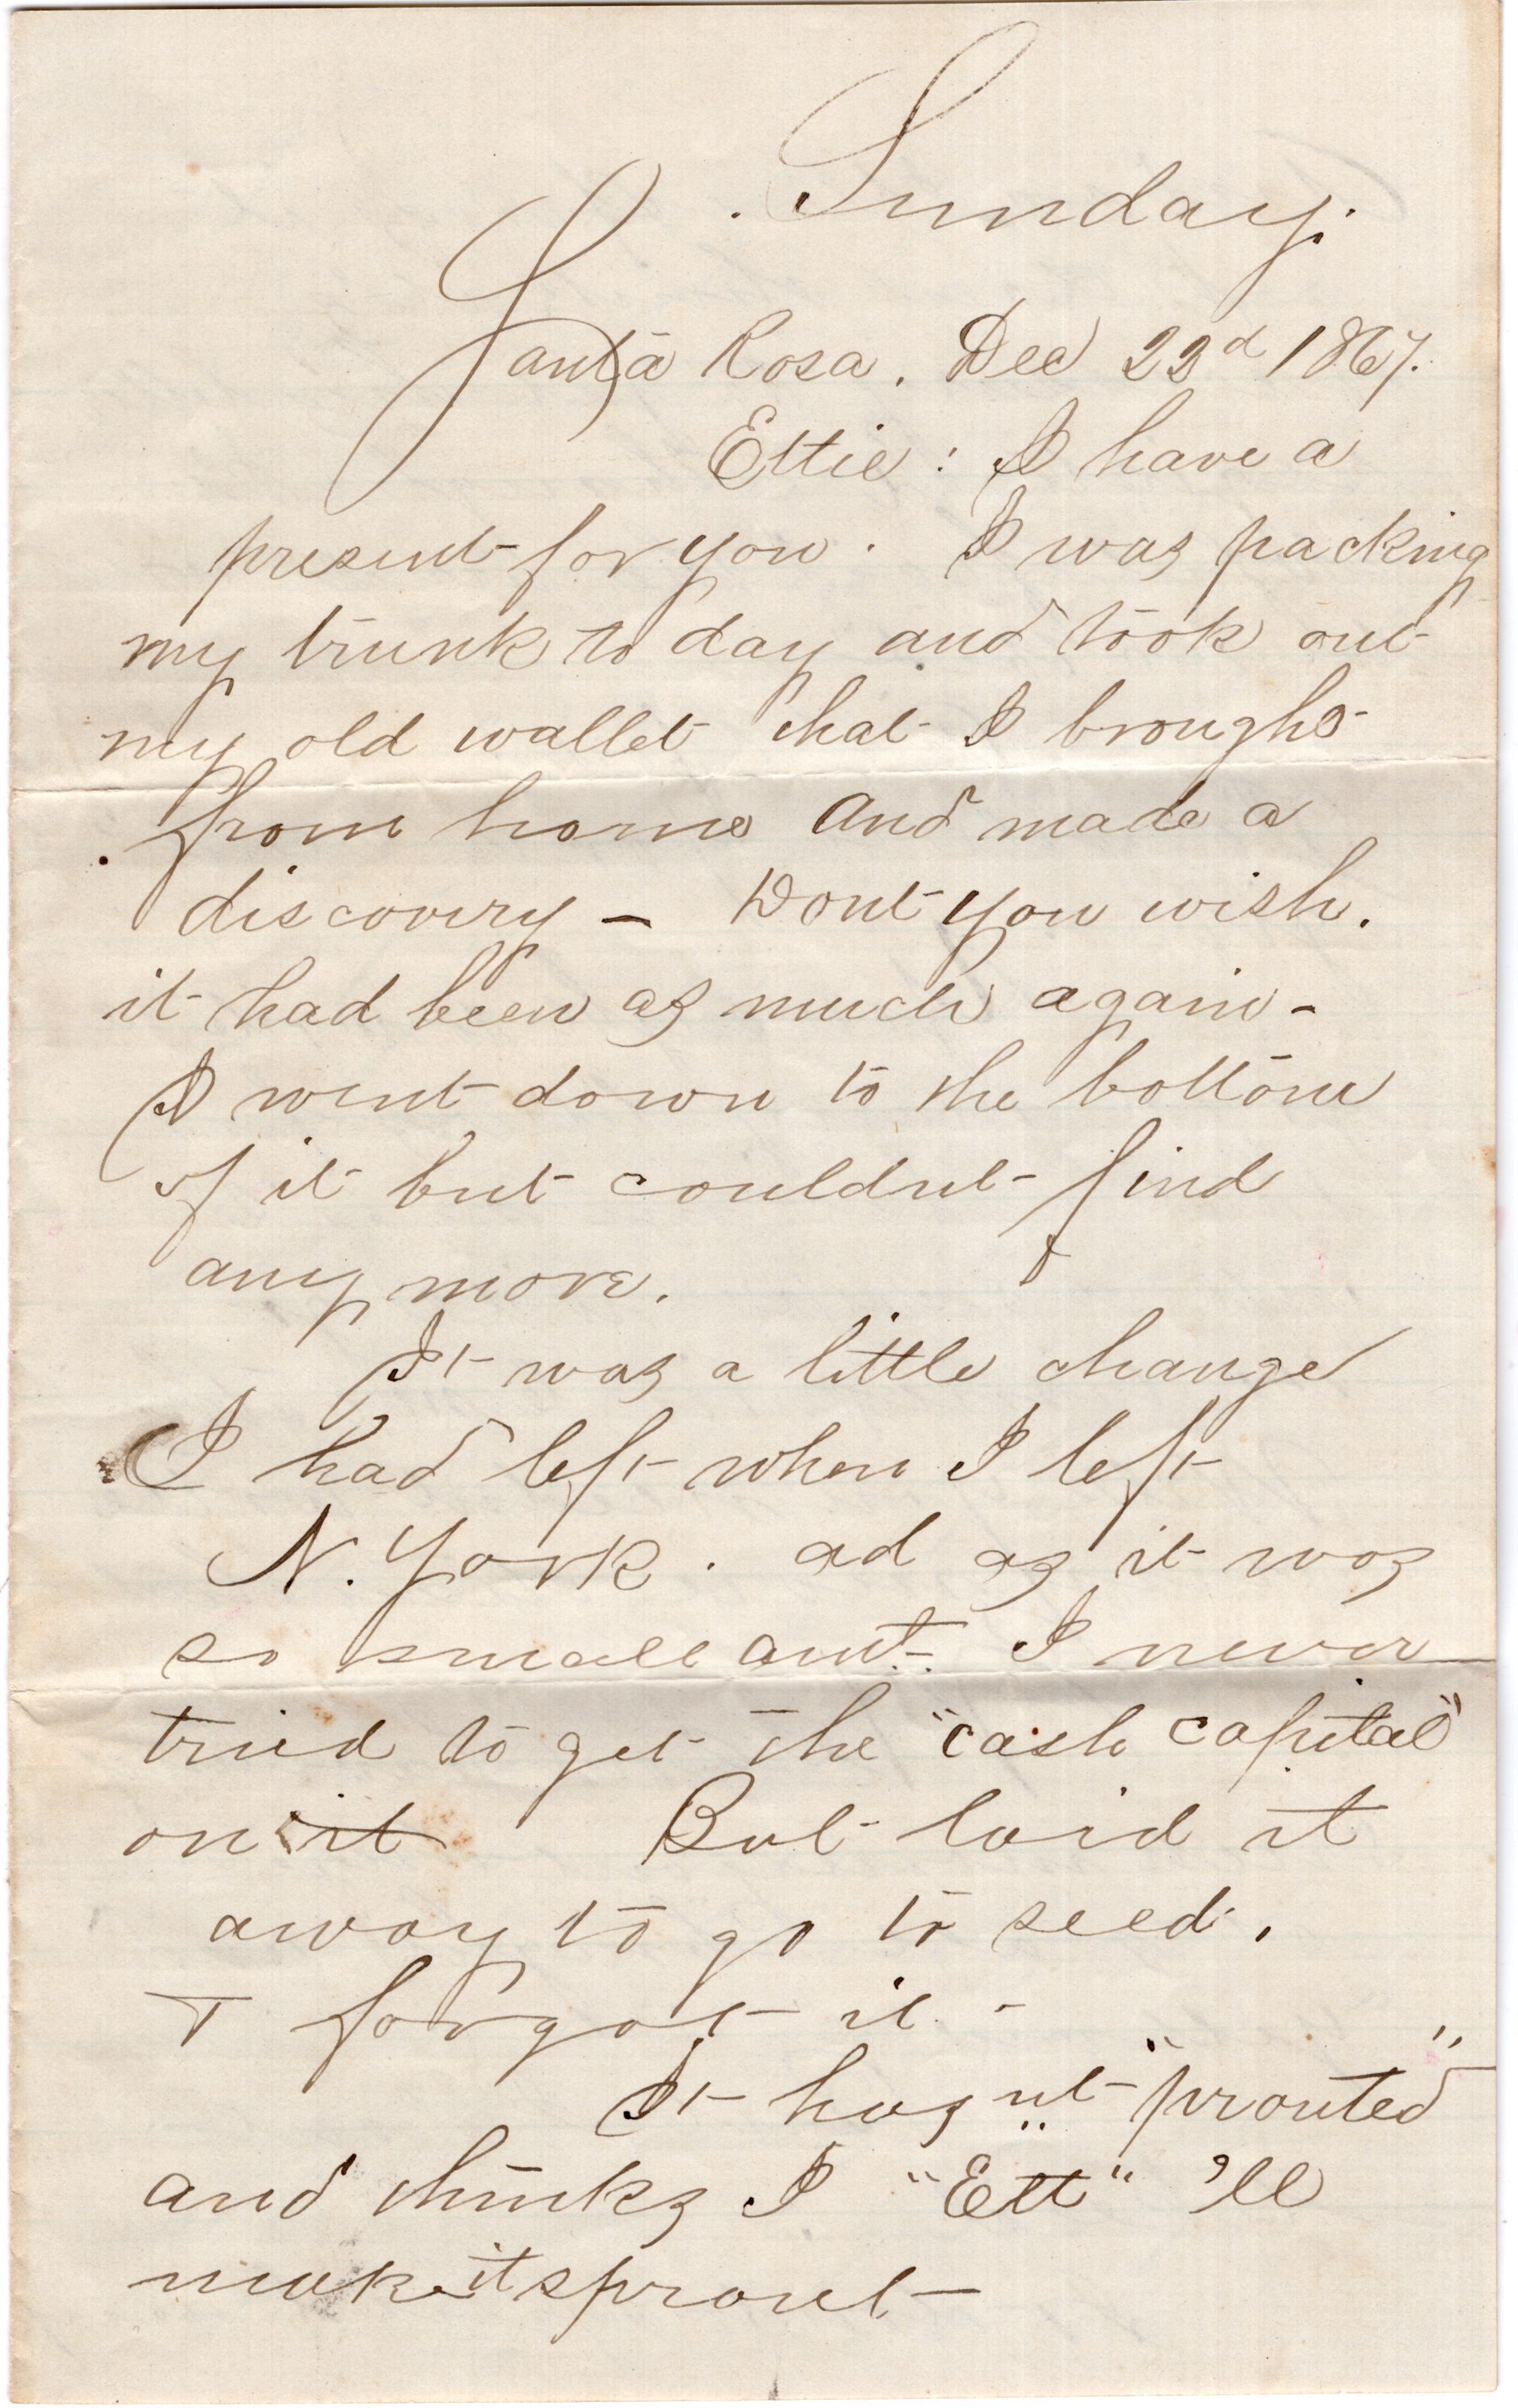 Sunday.
Santa Rosa. Dec 22d 1867.
Ettie : I have a
present for you. I was packing
my trunk to day and took out
my old wallet that I brought
from home and made a
discovery — Dont you wish.
it had been as much again -
I went down to the bottom
of it but couldnt find
any more.
It was a little change
I had left when I left
N. York. ad as it was
so small amt. I never
tried to get the "cash capital"
on it But laid it
away to go to seed.
+ forgot it -
It has nt "prouted"
and thinks I "Ett" 'll
make it sprout —